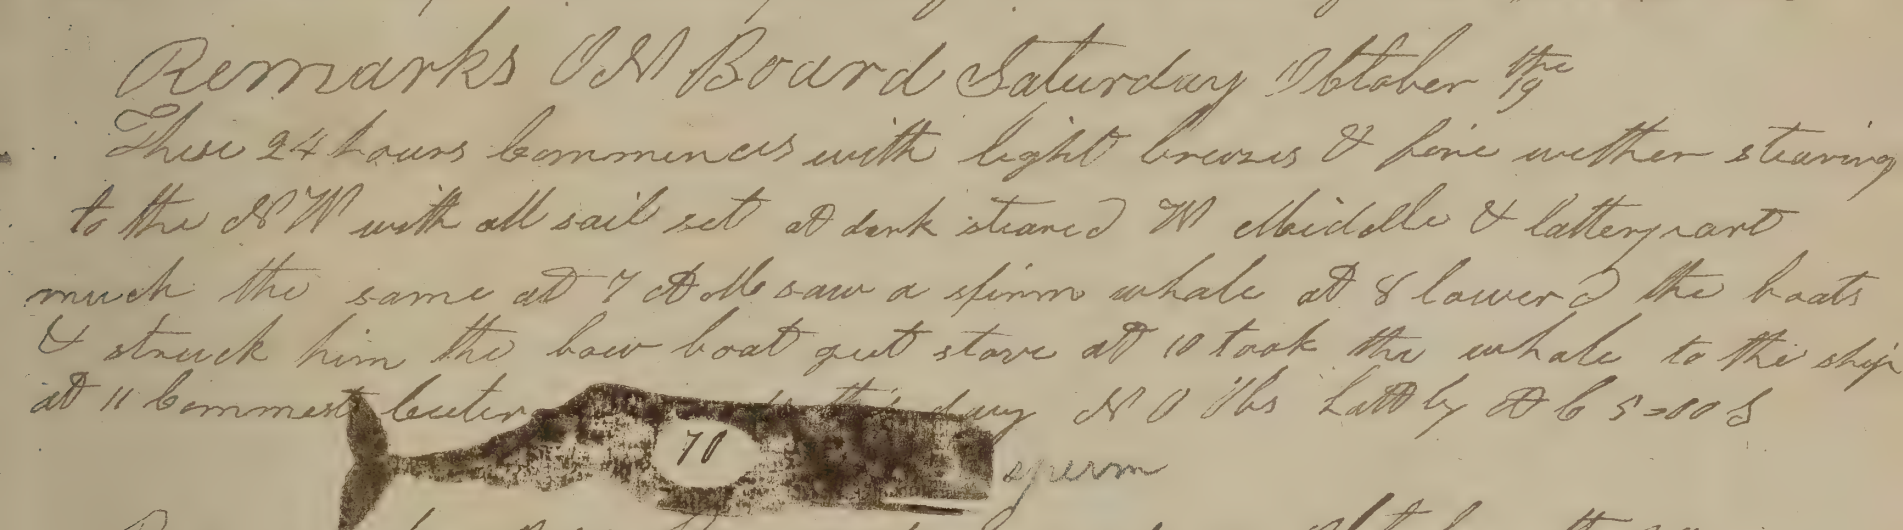 Remarks ON Board Saturday October the 19
These 24 hours Commences with light breezes & fine wether stearing
to the NW with all sail set at dark steared W Middle & latterpart
much the same at 7 AM saw a spirm whale at 8 lowered the boats
& struck him the bow boat got stove at 10 took the whale to the ship
at 11 Commest cuten this day N O Obs Latt by A C 5=00 S
70
sperm